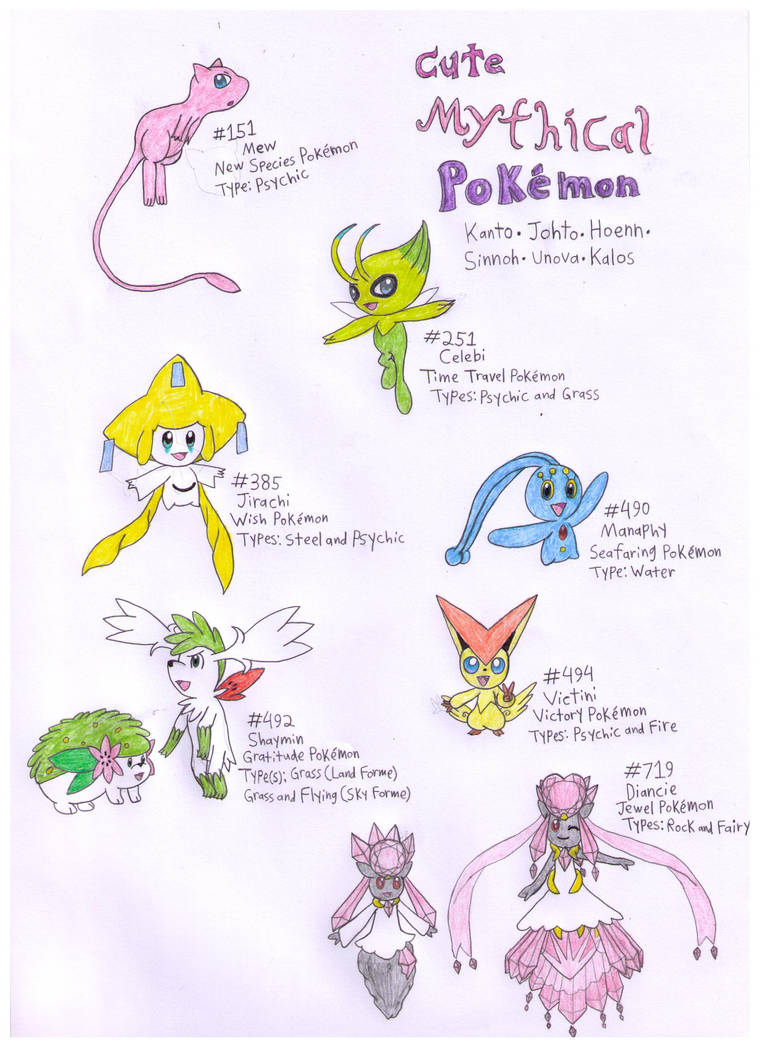 Cute
Mythical
Pokémon
Kanto • Johto • Hoenn •
Sinnoh • Unova • Kalos
#151
Mew
New Species Pokémon
Type: Psychic
#251
Celebi
Time Travel Pokémon
Types: Psychic and Grass
#385
Jirachi
Wish Pokémon
Types: Steel and Psychic
#490
Manaphy
Seafaring Pokémon
Type: Water
#492
Shaymin
Gratitude Pokémon
Type(s): Grass (Land Forme)
Grass and Flying (Sky Forme)
#494
Victini
Victory Pokémon
Types: Psychic and Fire
#719
Diancie
Jewel Pokémon
Types: Rock and Fairy